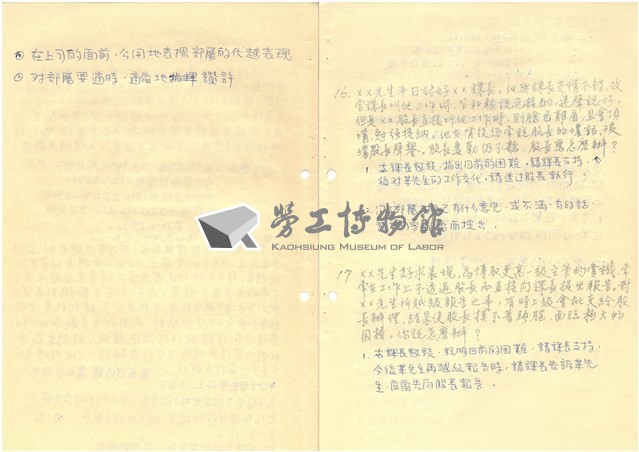 ⊙ 在上司的面前,公開地表揚部屬的优越表現
⊙ 对部屬要適時,適當地指揮讚許
16. ××先生平日討好××課長,但與課長交情不錯,故
當課長叫他工作時,
但是××股長直接叫他工作時,則臉色
情,勉強接納。他在背後經常說股長的壞話,破
壞股長聲譽。股長
1. 去課長談談,指出目前的困難,請課長支持,
後对某先生的工作交代,請透过股長執行。
有什么意見,或不滿,有的話,
面提出。
勞工博物館
KAOHSIUNG MUSEUM OF LABOR
17 ××先生好求表現,為博取更高一級主管的賞識,常
常在工作上不透過股長而直接向課長提出報告。對
××先生所越級報告之事,有時上級會批交給股
長辦理,結果使股長摸不著頭腦,面臨極大的
困擾。你說怎麼辦?
1. 去課長談談,說明目前的困難,請課長支持,
今後某先生再越級報告時,請課長告訴某先
生,應當先向股長報告。